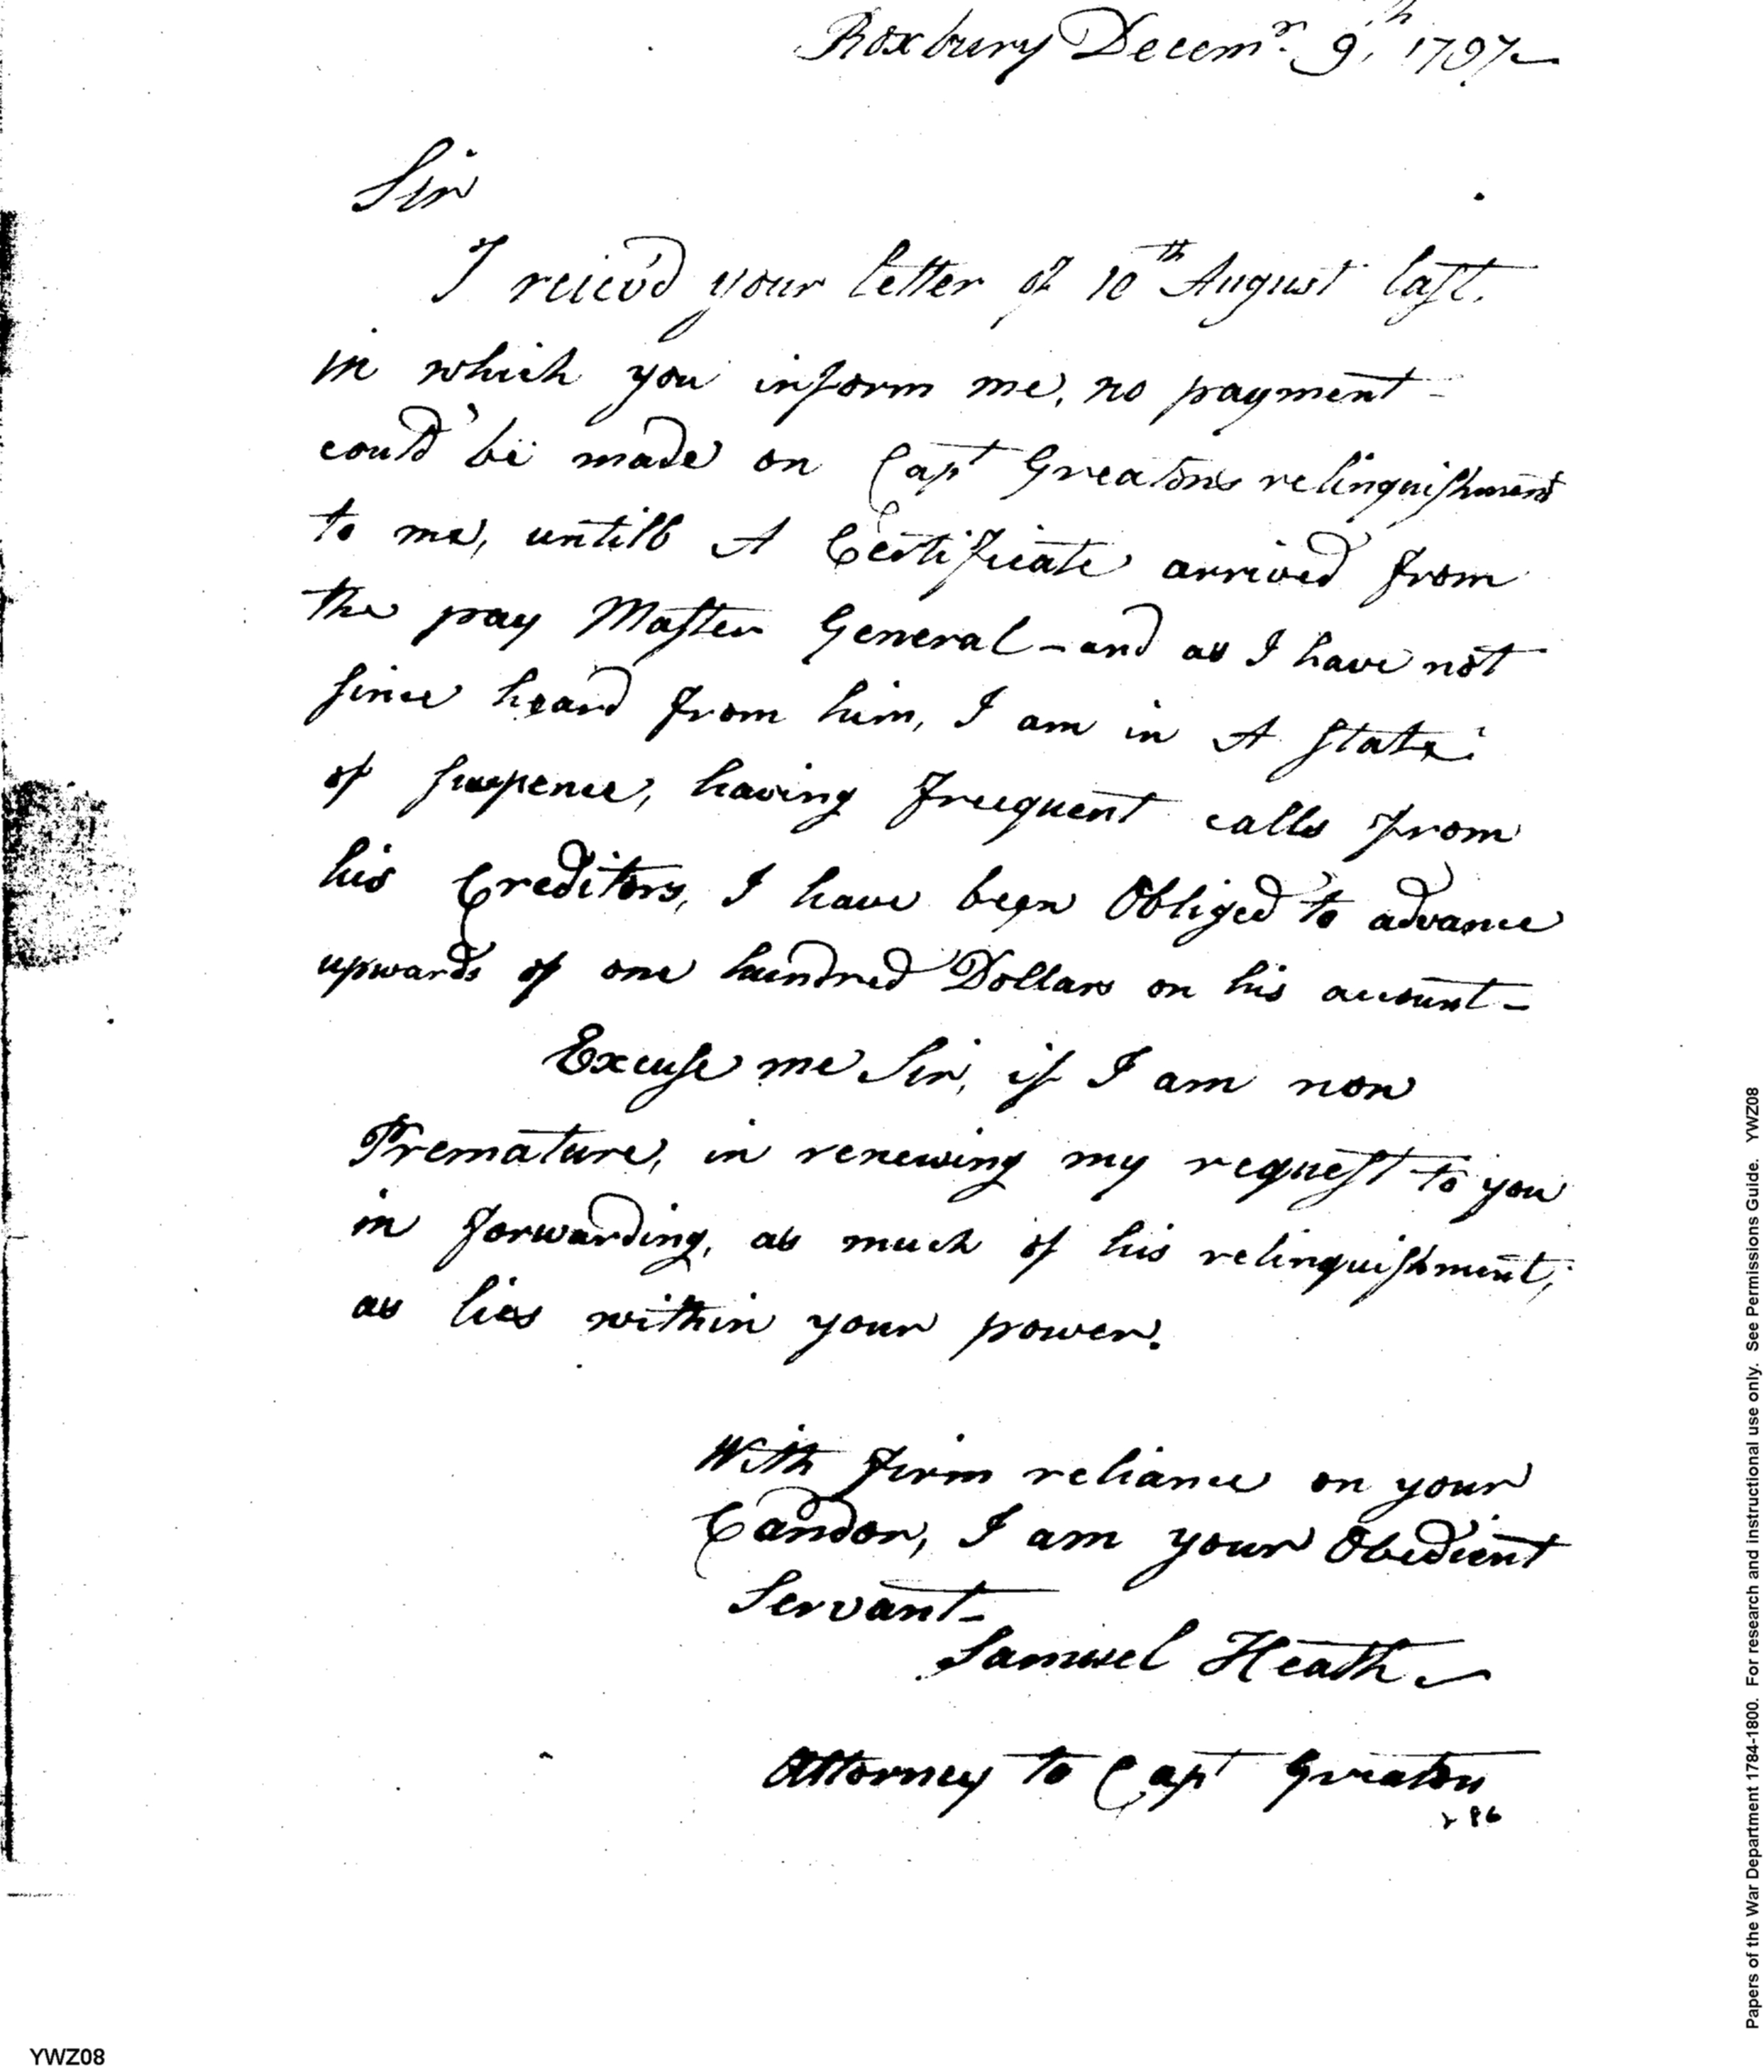 Roxbury Decemr. 9th, 1797
Sir
I reicev'd your letter of 10th August last.
in which you inform me, no payment-
could be made on Capt Greaton's relinquishment
to me, untill A Certificate arrived from
the pay Master General - and as I have not
since heard from him, I am in A state
of suspence, having freequent calls from
his Creditors, I have been Obliged to advance
upwards of one hundred Dollars on his account-
Excuse me Sir, if I am now
Premature, in renewing my request to you
in forwarding, as much of his relinquishment,
as lies within your power.
With firm reliance on your
Candor, I am your Obedient
Servant-
Samuel Heath
Attorney to Capt Greaton
YWZ08
Papers of the War Department 1784-1800. For research and instructional use only. See Permissions Guide. YWZ08